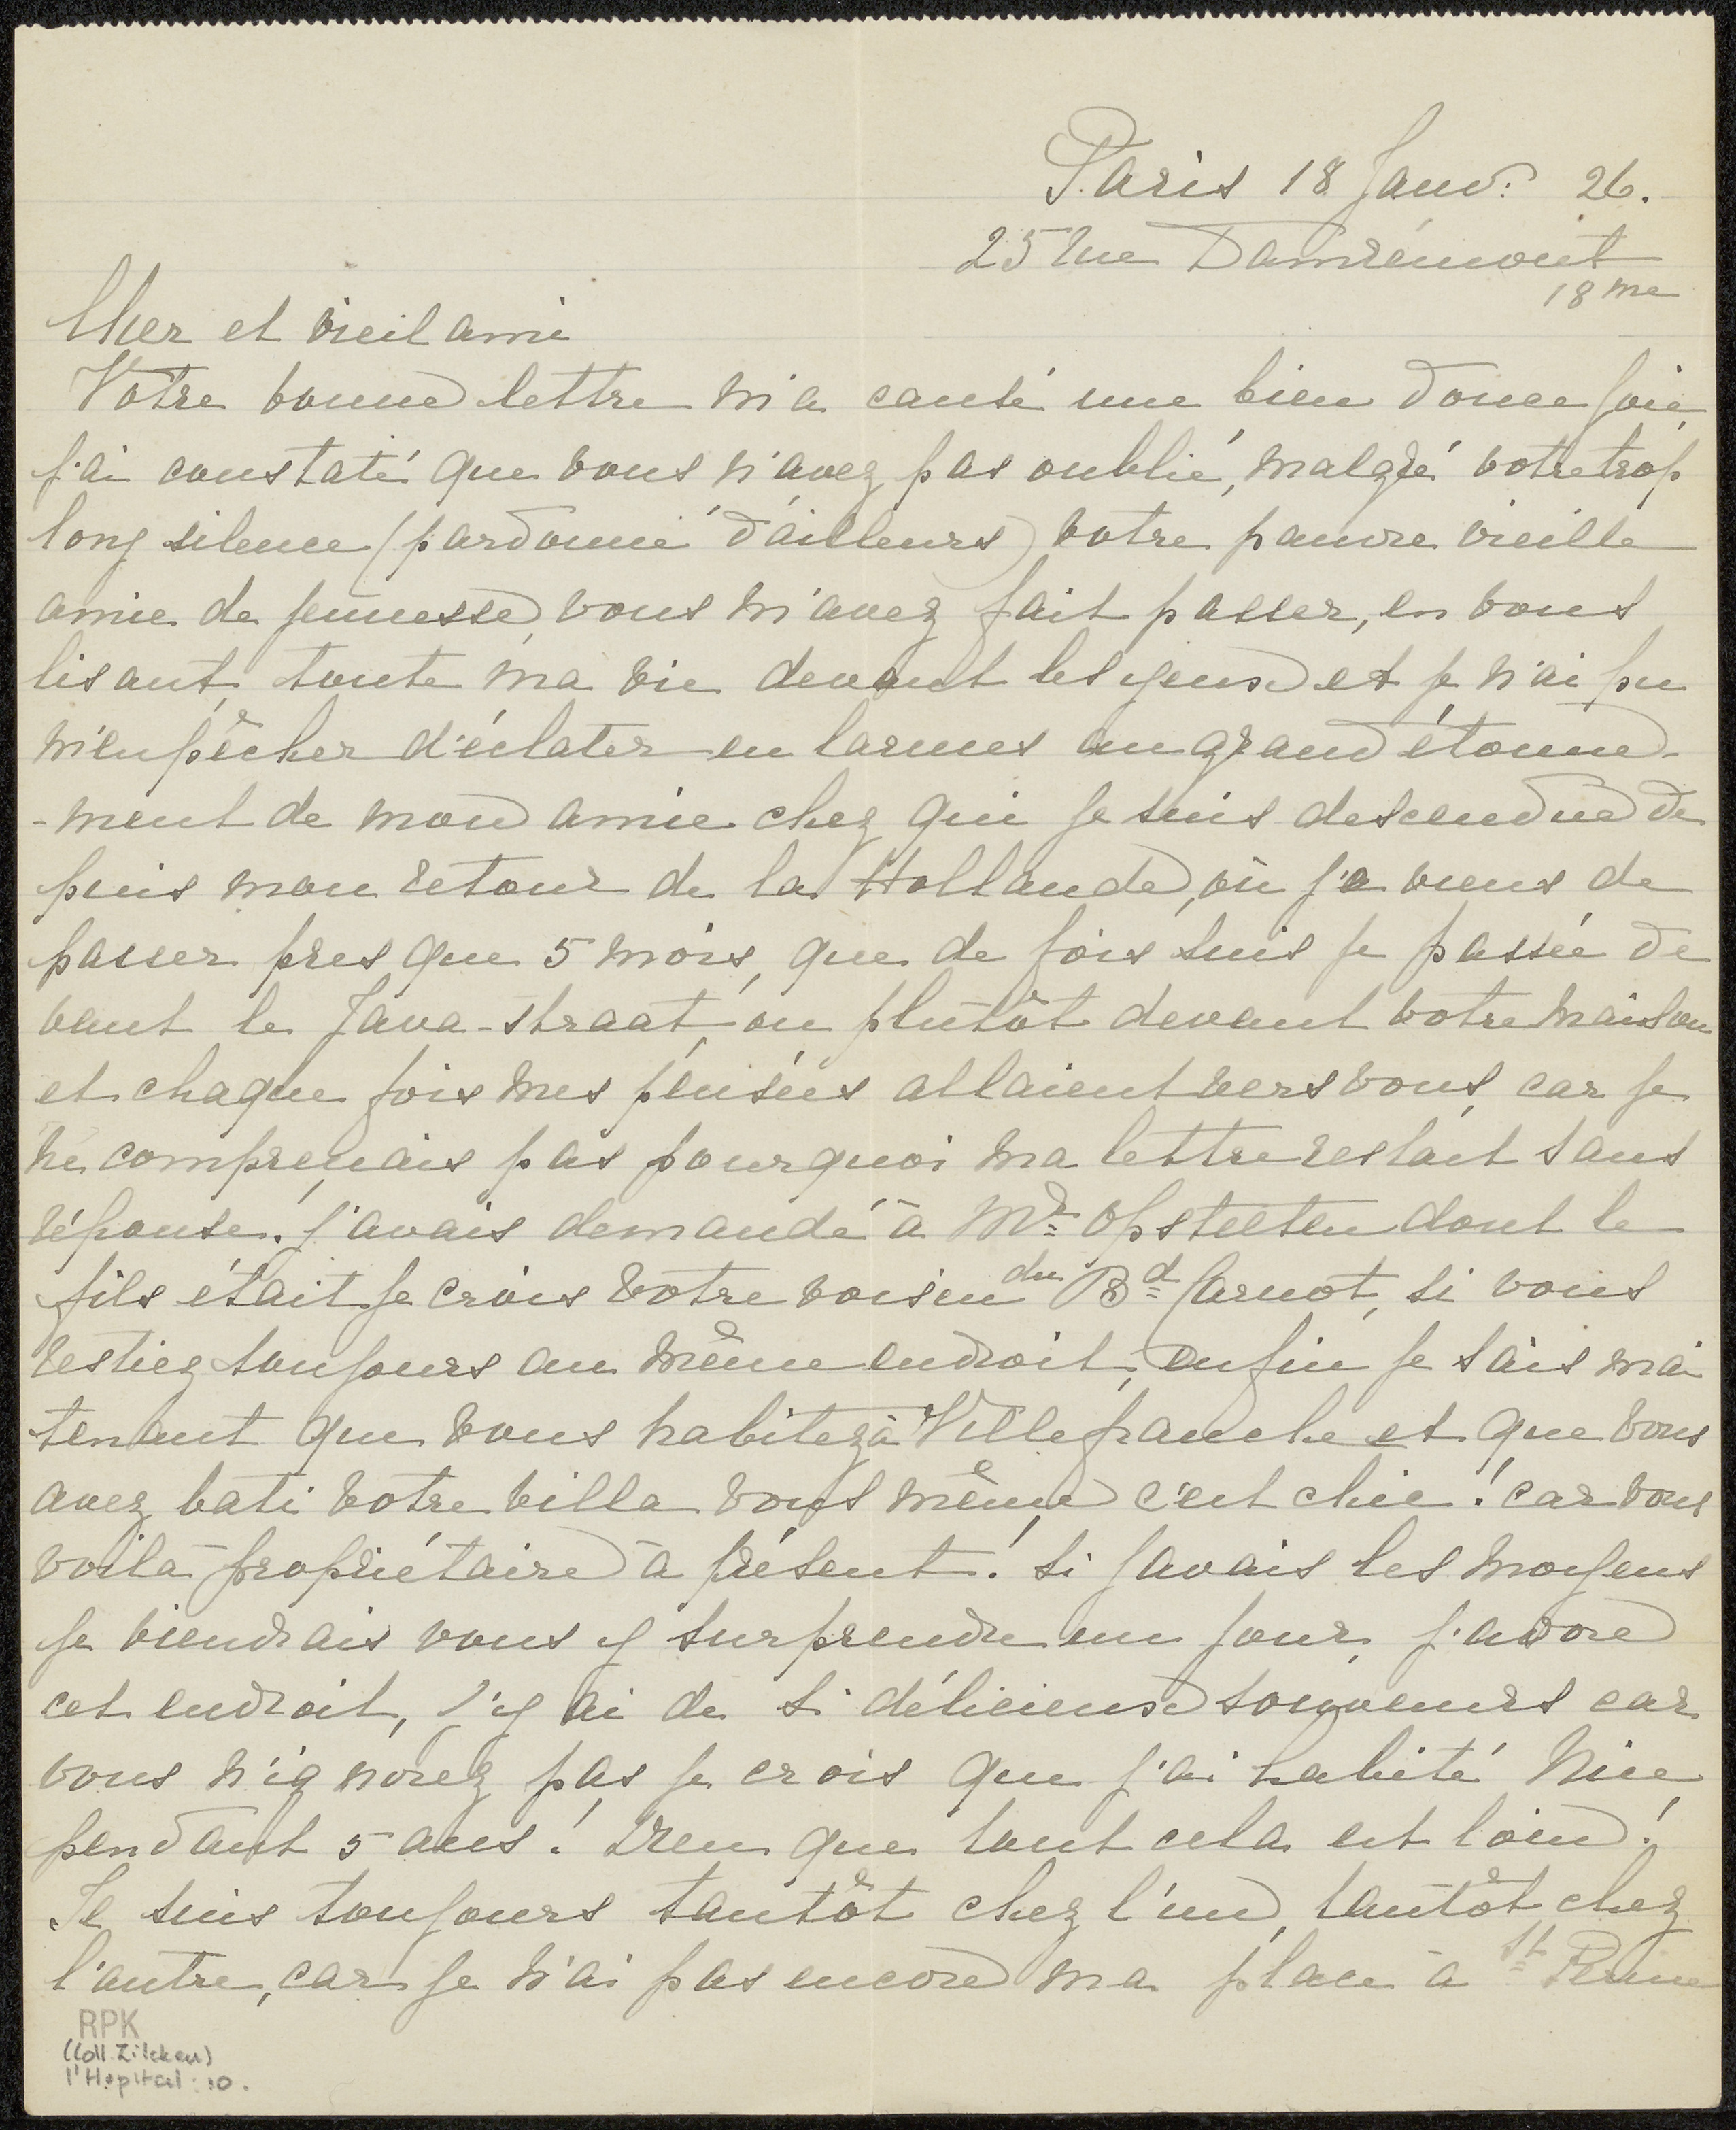 Paris 18 Janv: 26.
25 rue Damrémont
18me
Cher et vieil ami
Votre bonne lettre m'a causé une bien douce joie
j'ai constaté que vous n'avez pas oublié, malgré votre trop
long silence (pardonné d'ailleurs) votre pauvre vieille
amie de jeunesse, vous m'avez fait passer, en vous
lisant, toute ma vie devant les yeux et je n'ai pu
m'empêcher d'éclater en larmes au grand étonne-
-ment de mon amie chez qui je suis descendue de
puis mon retour de la Hollande, où je viens de
passer presque 5 mois, que de fois suis je passée de
vant le Java-straat, ou plutôt devant votre maison
et chaque fois mes pensées allaient vers vous, car je
ne comprenais pas pourquoi ma lettre restait sans
réponse. j'avais demandé à Mr Opsteeten dont le
fils était je crois votre voisin du Bd Carnot, si vous
restiez toujours au même endroit, enfin je sais mai
tenant que vous habitez à Villefranche et que vous
avez bati votre villa vous même, c'est chic! car vous
voilà propriétaire à présent! si j'avais les moyens
je viendrais vous y surprendre un jour, j'adore
cet endroit, j'y ai de si délicieux souvenirs car
vous n'ignorez pas je crois que j'ai habité Nice
pendant 5 ans! Dieu que tout cela est loin!
Je suis toujours tantôt chez l'un, tantôt chez
l'autre, car je n'ai pas encore ma place à St Perine
RPK
(Coll. Zilcken)
l'Hopital: 10.